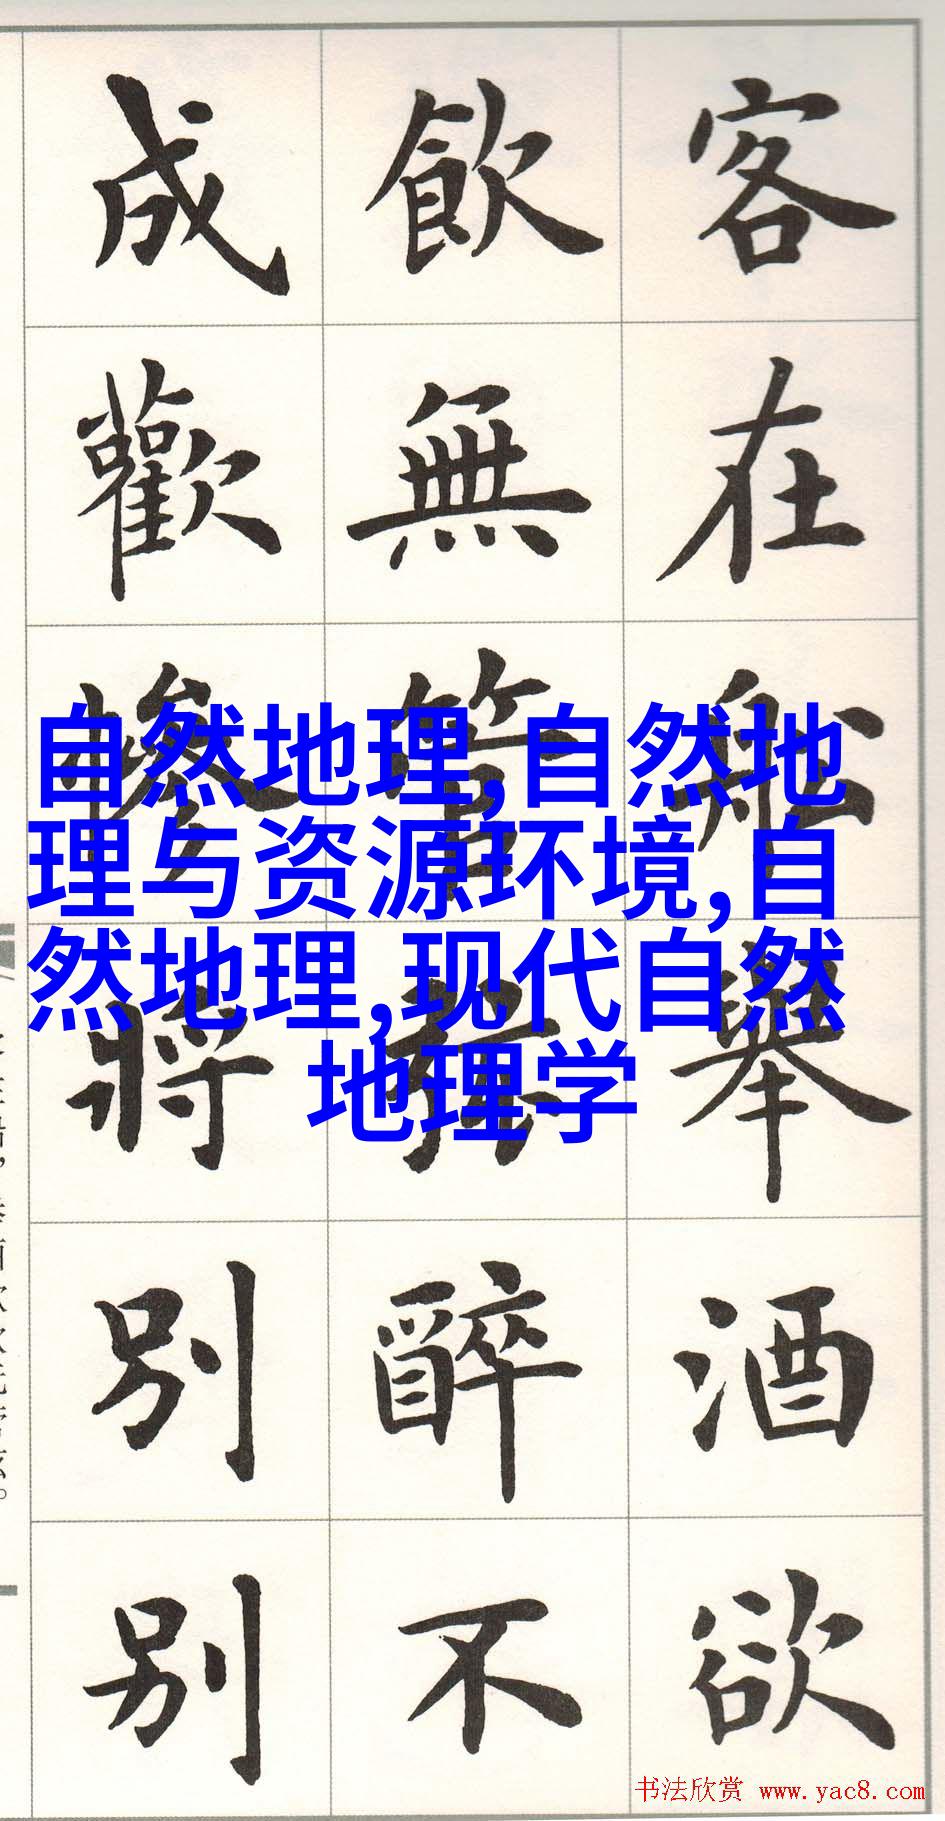 客在舩舉酒欲
飲無管醉不
成歡慘將別別
自然地理,自然地
理与资源环境,自
然地理,现代自然
地理学
书法欣赏 www.yac8.com